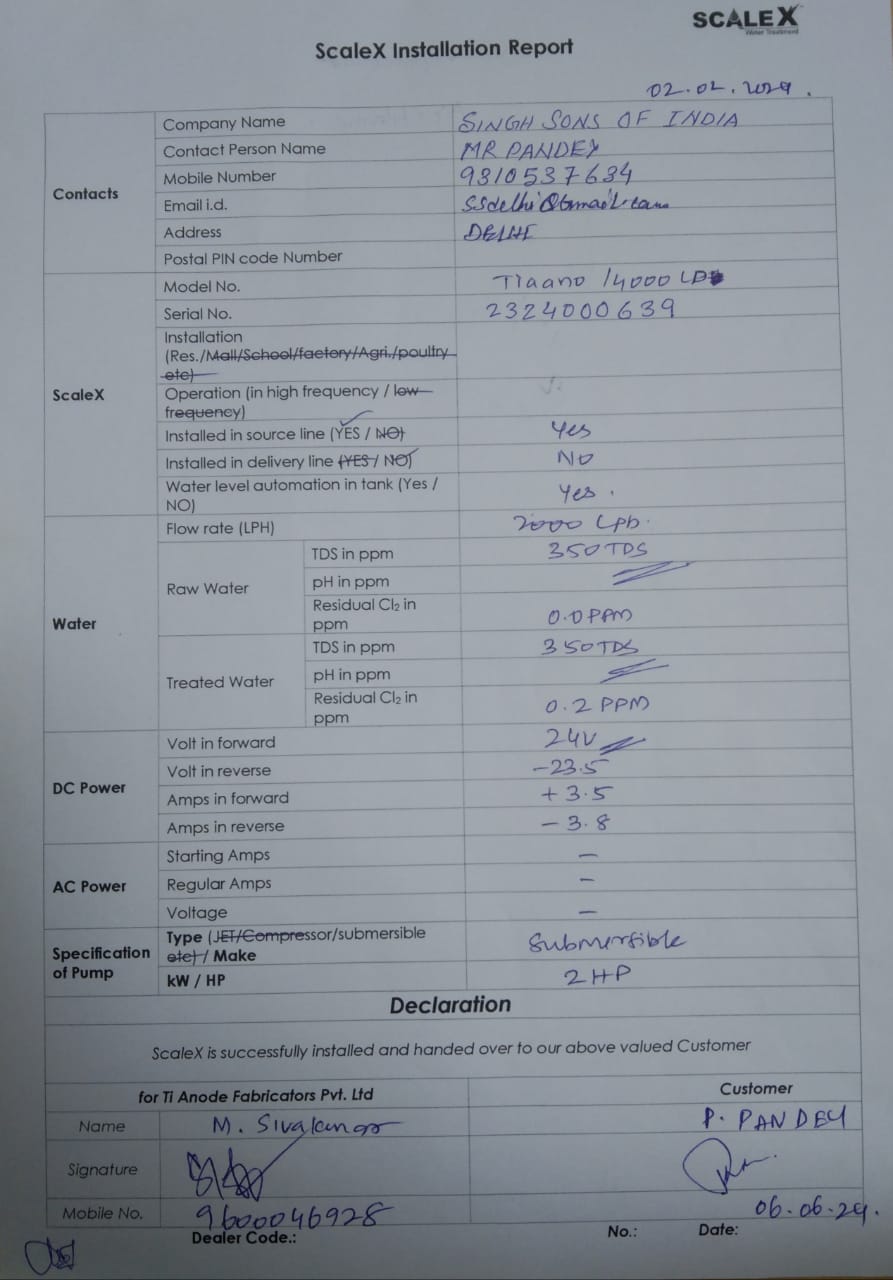 SCALEX
Water Treatment
ScaleX Installation Report
02.02.2024.
Contacts
Company Name SINGH SONS OF INDIA
Contact Person Name MR PANDEY
Mobile Number 9310537634
Email i.d. ssdelhi@Gmail.com
Address DELHI
Postal PIN code Number
ScaleX
Model No. Tiaano 14000 LD
Serial No. 2324000639
Installation
(Res./Mall/School/factory/Agri./poultry
etc)
Operation (in high frequency / low
frequency)
Installed in source line (YES / NO) Yes
Installed in delivery line (YES / NO) No
Water level automation in tank (Yes / Yes.
NO)
Water
Flow rate (LPH) 2000 Lph.
Raw Water
TDS in ppm 350 TDS
pH in ppm
Residual Cl₂ in 0.0 PPM
ppm
Treated Water
TDS in ppm 350 TDS
pH in ppm
Residual Cl₂ in 0.2 PPM
ppm
DC Power
Volt in forward 24V
Volt in reverse -23.5
Amps in forward +3.5
Amps in reverse -3.8
AC Power
Starting Amps –
Regular Amps –
Voltage –
Specification
of Pump
Type (JET/Compressor/submersible Submersible
etc) / Make
kW / HP 2 HP
Declaration
ScaleX is successfully installed and handed over to our above valued Customer
for Ti Anode Fabricators Pvt. Ltd Customer
Name M. P. PANDEY
Signature
Mobile No. 9600046928 06.06.24.
Dealer Code.: No.: Date: